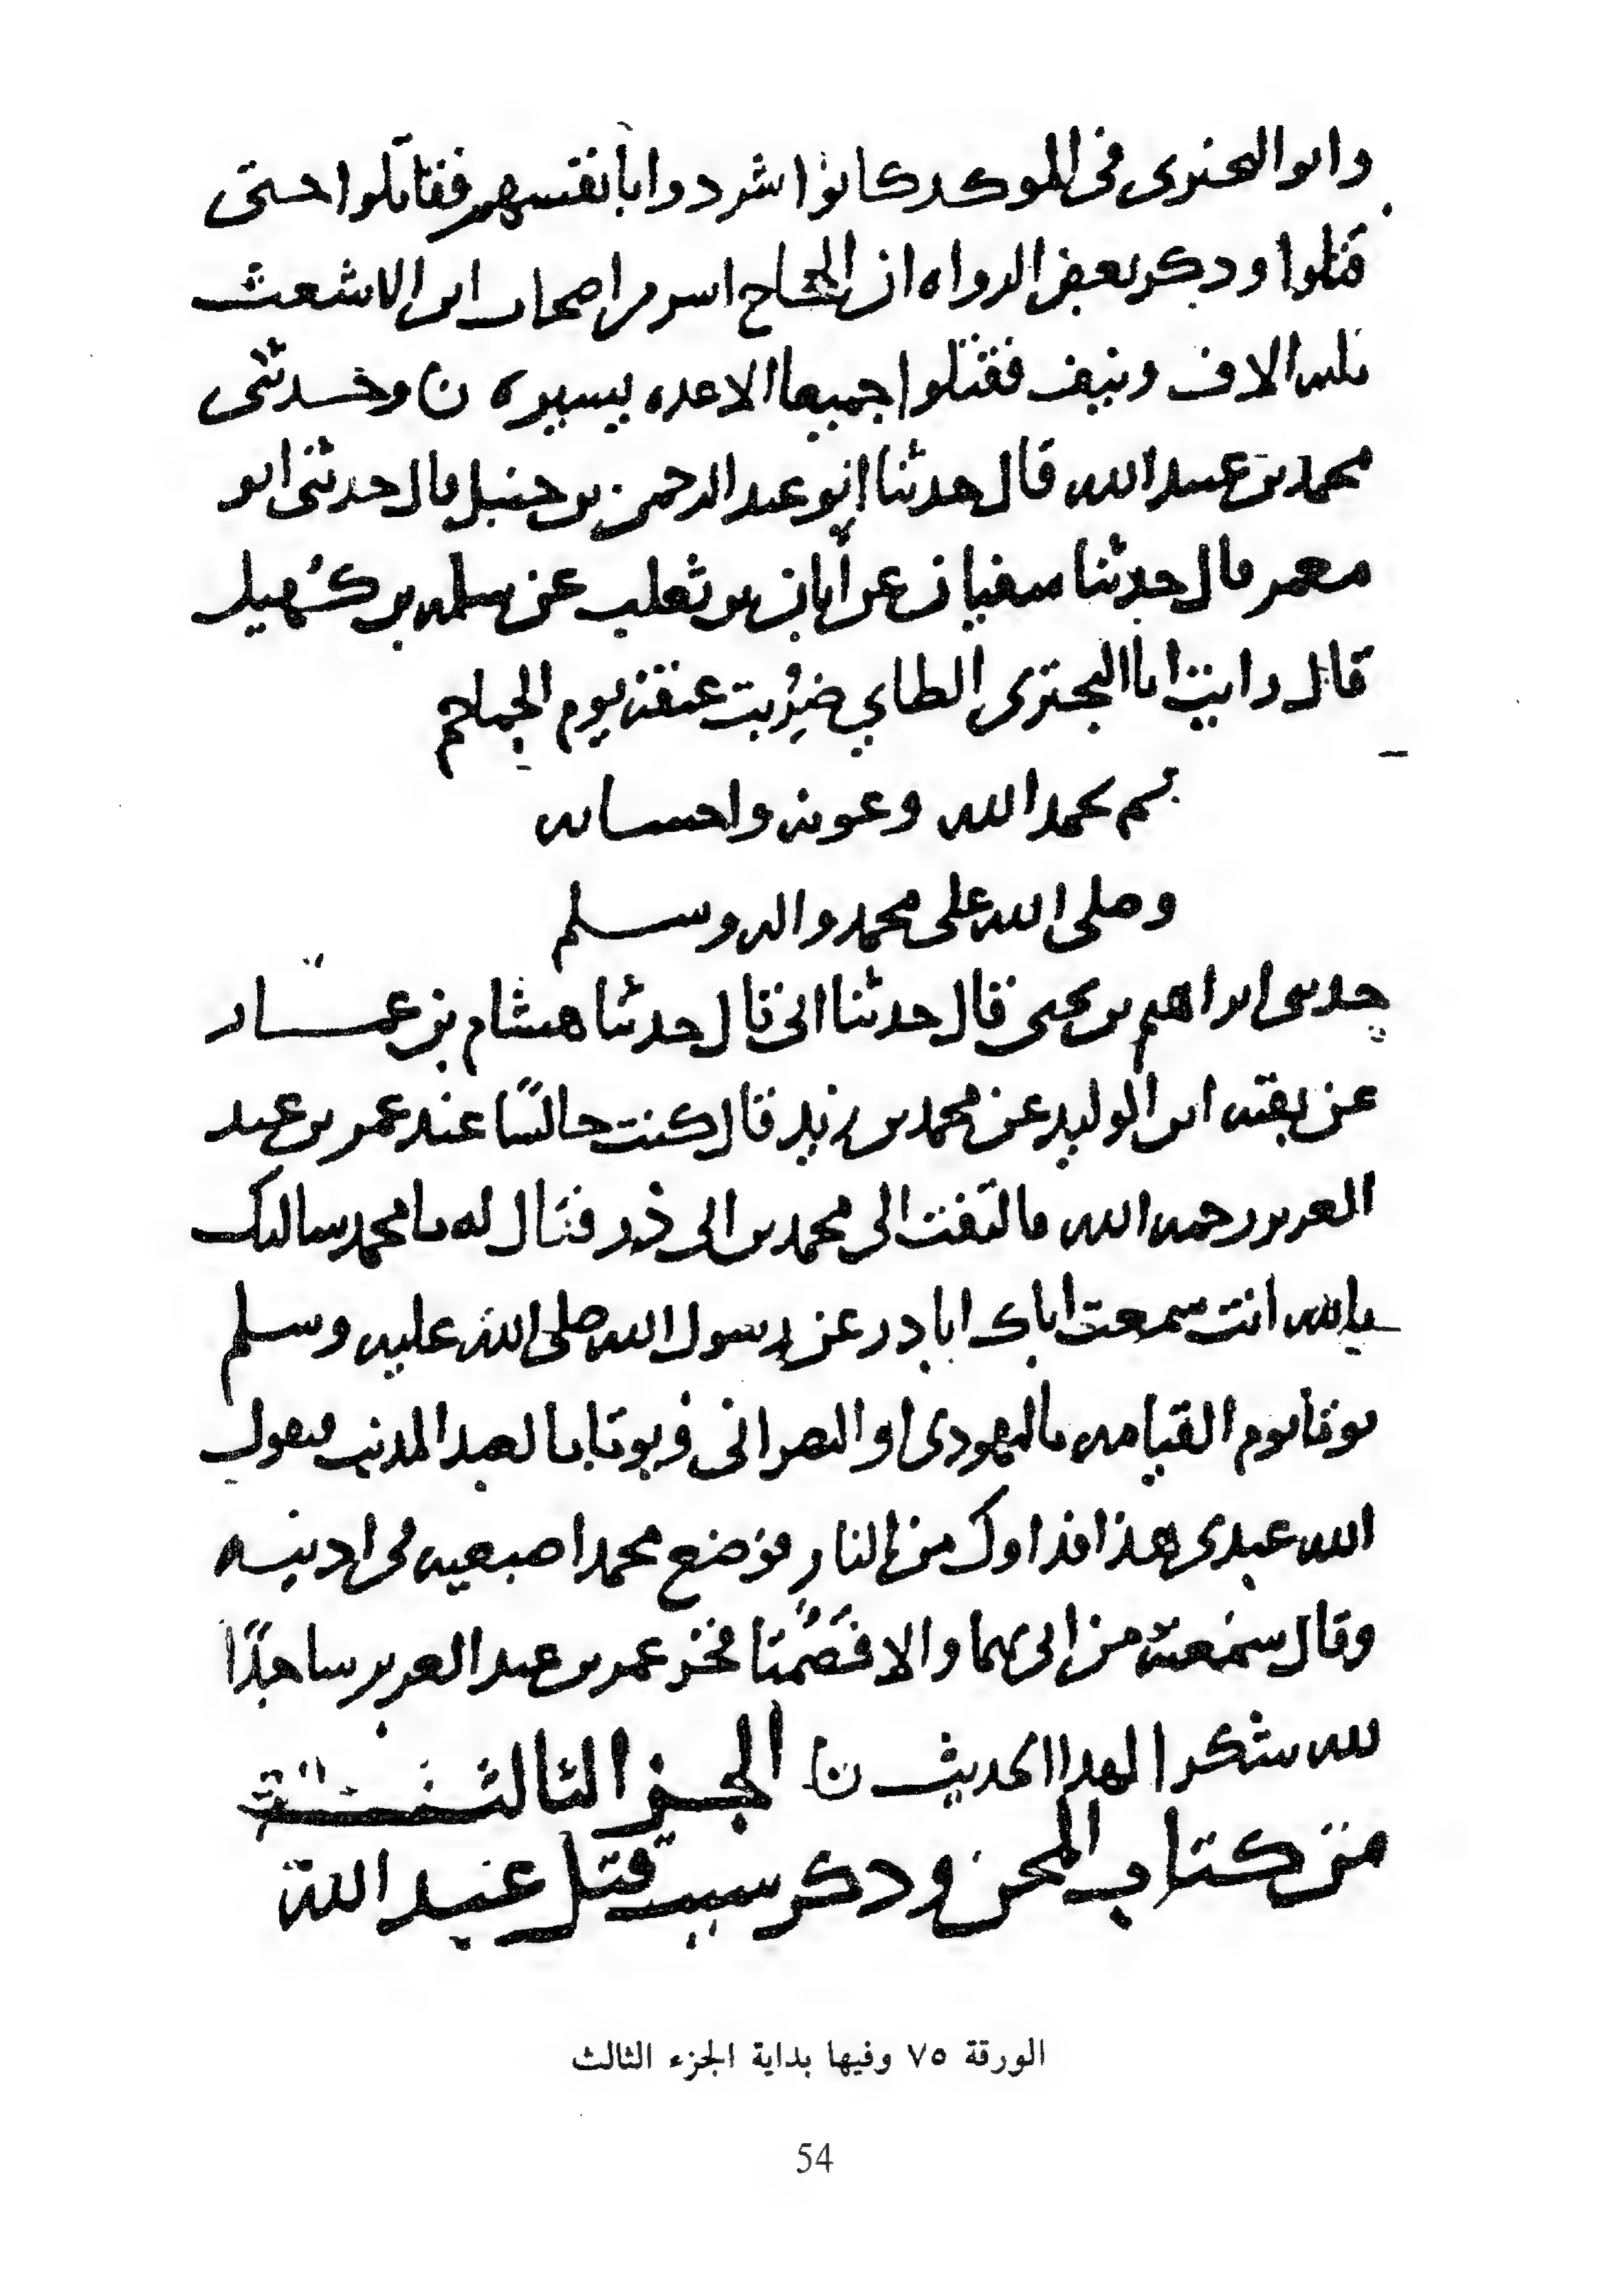 وابو البختري في الموكد كانوا شردوا بانفسهم فقاتلوا حتى
قتلوا وذكر بعض الرواه ان الحجاج اسر من اصحاب ابن الاشعث
ثلثه الاف ونيف فقتلوا جميعا الا عده يسيره ن وحدثني
محمد بن عبد الله قال حدثنا ابو عبد الرحمن بن حنبل قال حدثني ابو
معمر قال حدثنا سفيان عن أبان بن ثعلب عن سلمه بن كُهيل
قال رايت ابا البختري الطاي ضُرِبت عنقه يوم الجماجم
تم بحمد الله وعونه واحسانه
وصلى الله على محمد واله وسلم
حدثني ابراهيم بن يحيى قال حدثنا ابي قال حدثنا هشام بن عمّار
عن بقيه ابن الوليد عن محمد بن زيد قال كنت جالسًا عند عمر بن عبد
العزيز رحمه الله فالتفت الى محمد بن ابي ذر فقال له يا محمد سالتك
بالله انت سمعت اباك ابا ذر عن رسول الله صلى الله عليه وسلم
يوتا يوم القيامه باليهودي او النصراني ويوتا بالعبد المذنب فيقول
الله عبدي هذا فداوك من النار فوضع محمد اصبعيه في اذنيه
وقال سمعته من ابي بهما والا فَصُمَّتا فخر عمر بن عبد العزيز ساجدًا
لله شكرا لهذا الحديث ن الجز الثالث
من كتاب المحن وذكر سبب قتل عبد الله
الورقة ٧٥ وفيها بداية الجزء الثالث
54